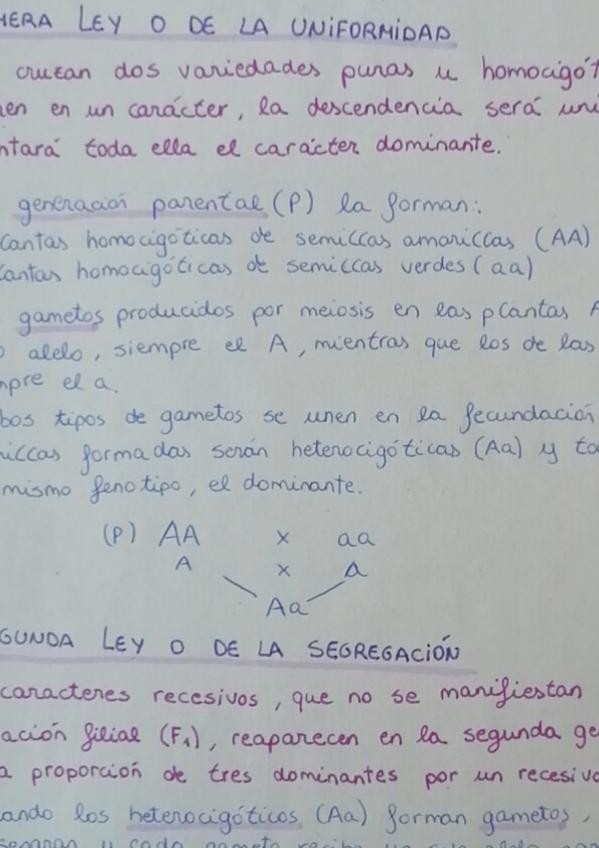 MERA LEY O DE LA UNIFORMIDAD
cruzan dos variedades puras u homocigót
en en un carácter, la descendencia será uni
ntará toda ella el carácter dominante.
generación parental (P) la forman:
lantas homocigóticas de semillas amarillas (AA)
lantas homocigóticas de semillas verdes (aa)
gametos producidos por meiosis en las plantas A
o alelo, siempre el A, mientras que los de las
mpre el a.
bos tipos de gametos se unen en la fecundación
illas formadas serán heterocigóticas (Aa) y to
mismo fenotipo, el dominante.
(P) AA x aa
A x a
Aa
GUNDA LEY O DE LA SEGREGACIÓN
caracteres recesivos, que no se manifiestan
ación filial (F1), reaparecen en la segunda ge
a proporción de tres dominantes por un recesivo
ando los heterocigóticos (Aa) forman gametos,
separan y cada gameto recibe un